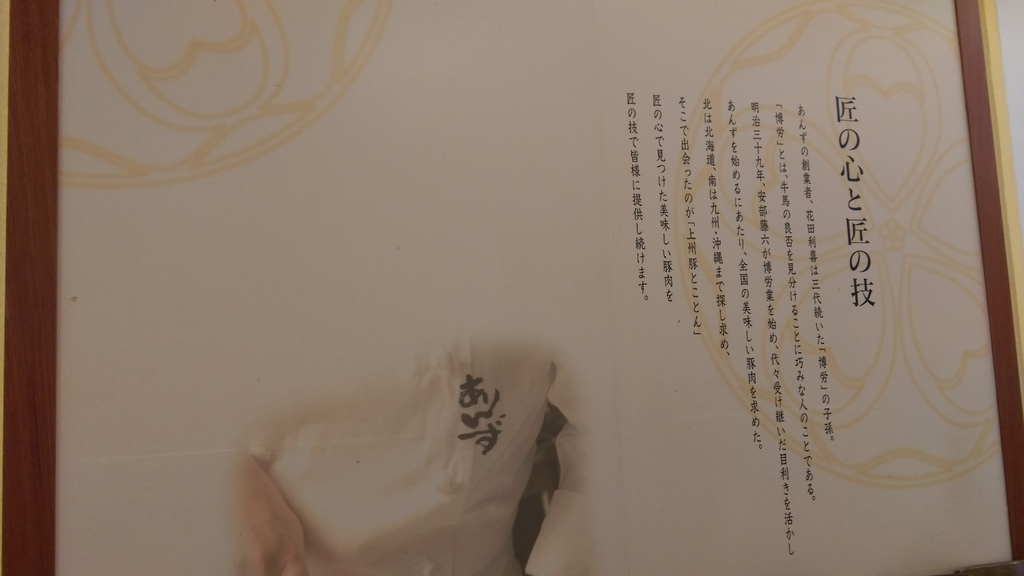 匠の心と匠の技
あんずの創業者、花田利喜は三代続いた「博労」の子孫。
「博労」とは、牛馬の良否を見分けることに巧みな人のことである。
明治三十九年、安部藤六が博労業を始め、代々受け継いだ目利きを活かし
あんずを始めるにあたり、全国の美味しい豚肉を求めた。
北は北海道、南は九州・沖縄まで探し求め、
そこで出会ったのが「上州豚とことん」
匠の心で見つけた美味しい豚肉を
匠の技で皆様に提供し続けます。
あんず